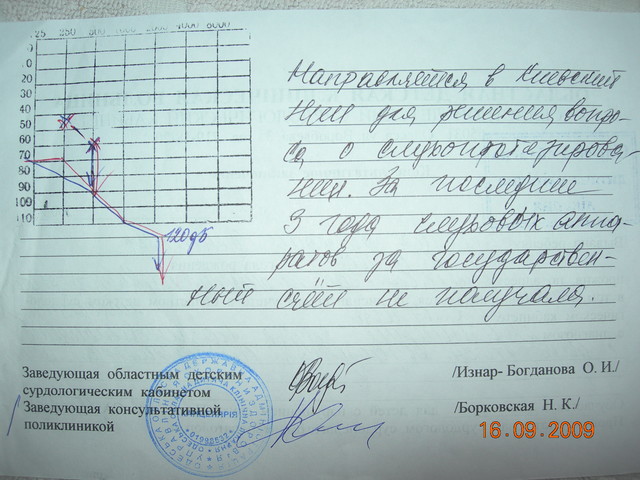 125 250 500 1000 2000 4000 8000
0
10
20
30
40
50
60
70
80
90
100
110
120дб
Направляется в Киевский
НИИ для решения вопро-
са о слухопротезирова-
нии. За последние
3 года слуховых аппа-
ратов за государствен-
ный счёт не получала.
Заведующая областным детским
сурдологическим кабинетом
/Изнар- Богданова О. И./
Заведующая консультативной
поликлиникой
/Борковская Н. К./
16.09.2009